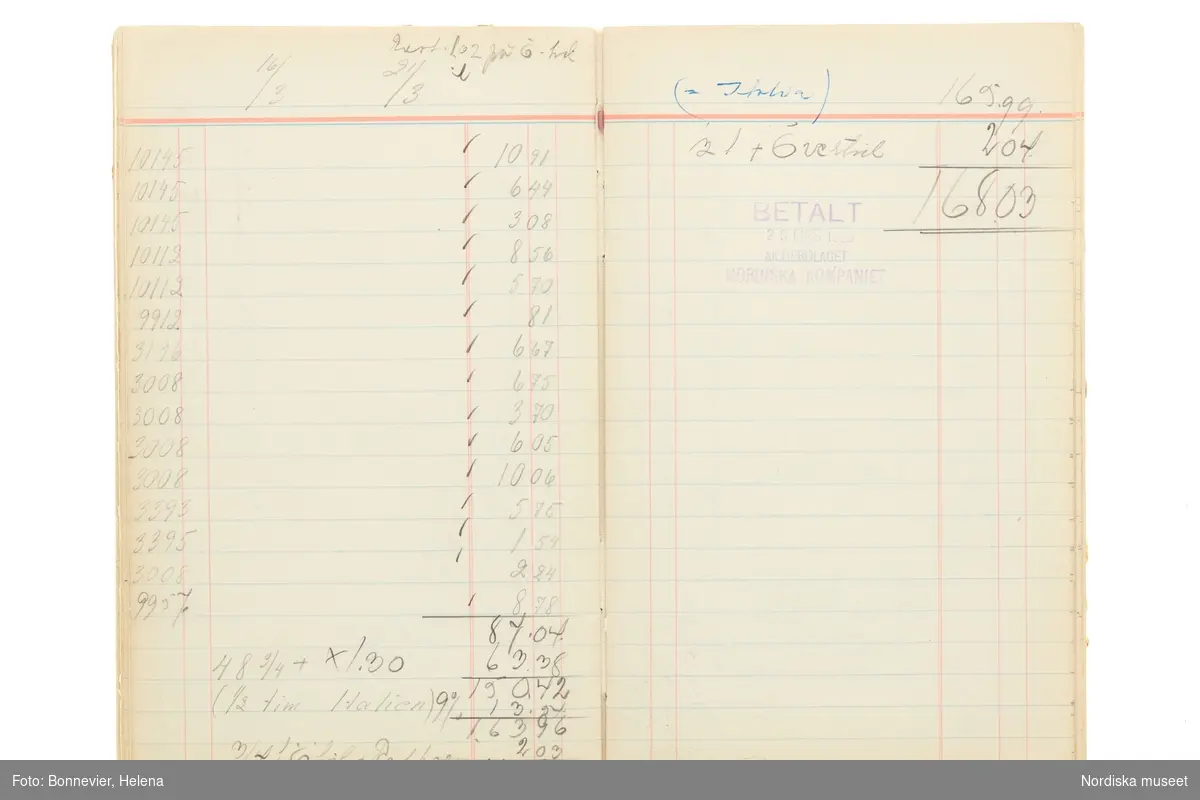 16/3 21/3
10145 10 91
10145 6 44
10145 3 08
10112 8 56
10112 5 70
9912 81
3196 6 67
3008 6 75
3008 3 70
3008 6 05
3008 10 06
3393 5 75
3395 1 54
3008 2 24
9957 8 78
87.04
48 3/4 + x 1.30 63.38
(1/2 tim Italien) 9% 150.42
163.96
203
165.99
21 + Övertid 2 04
168.03
BETALT
AKTIEBOLAGET
NORDISKA KOMPANIET
Foto: Bonnevier, Helena
Nordiska museet